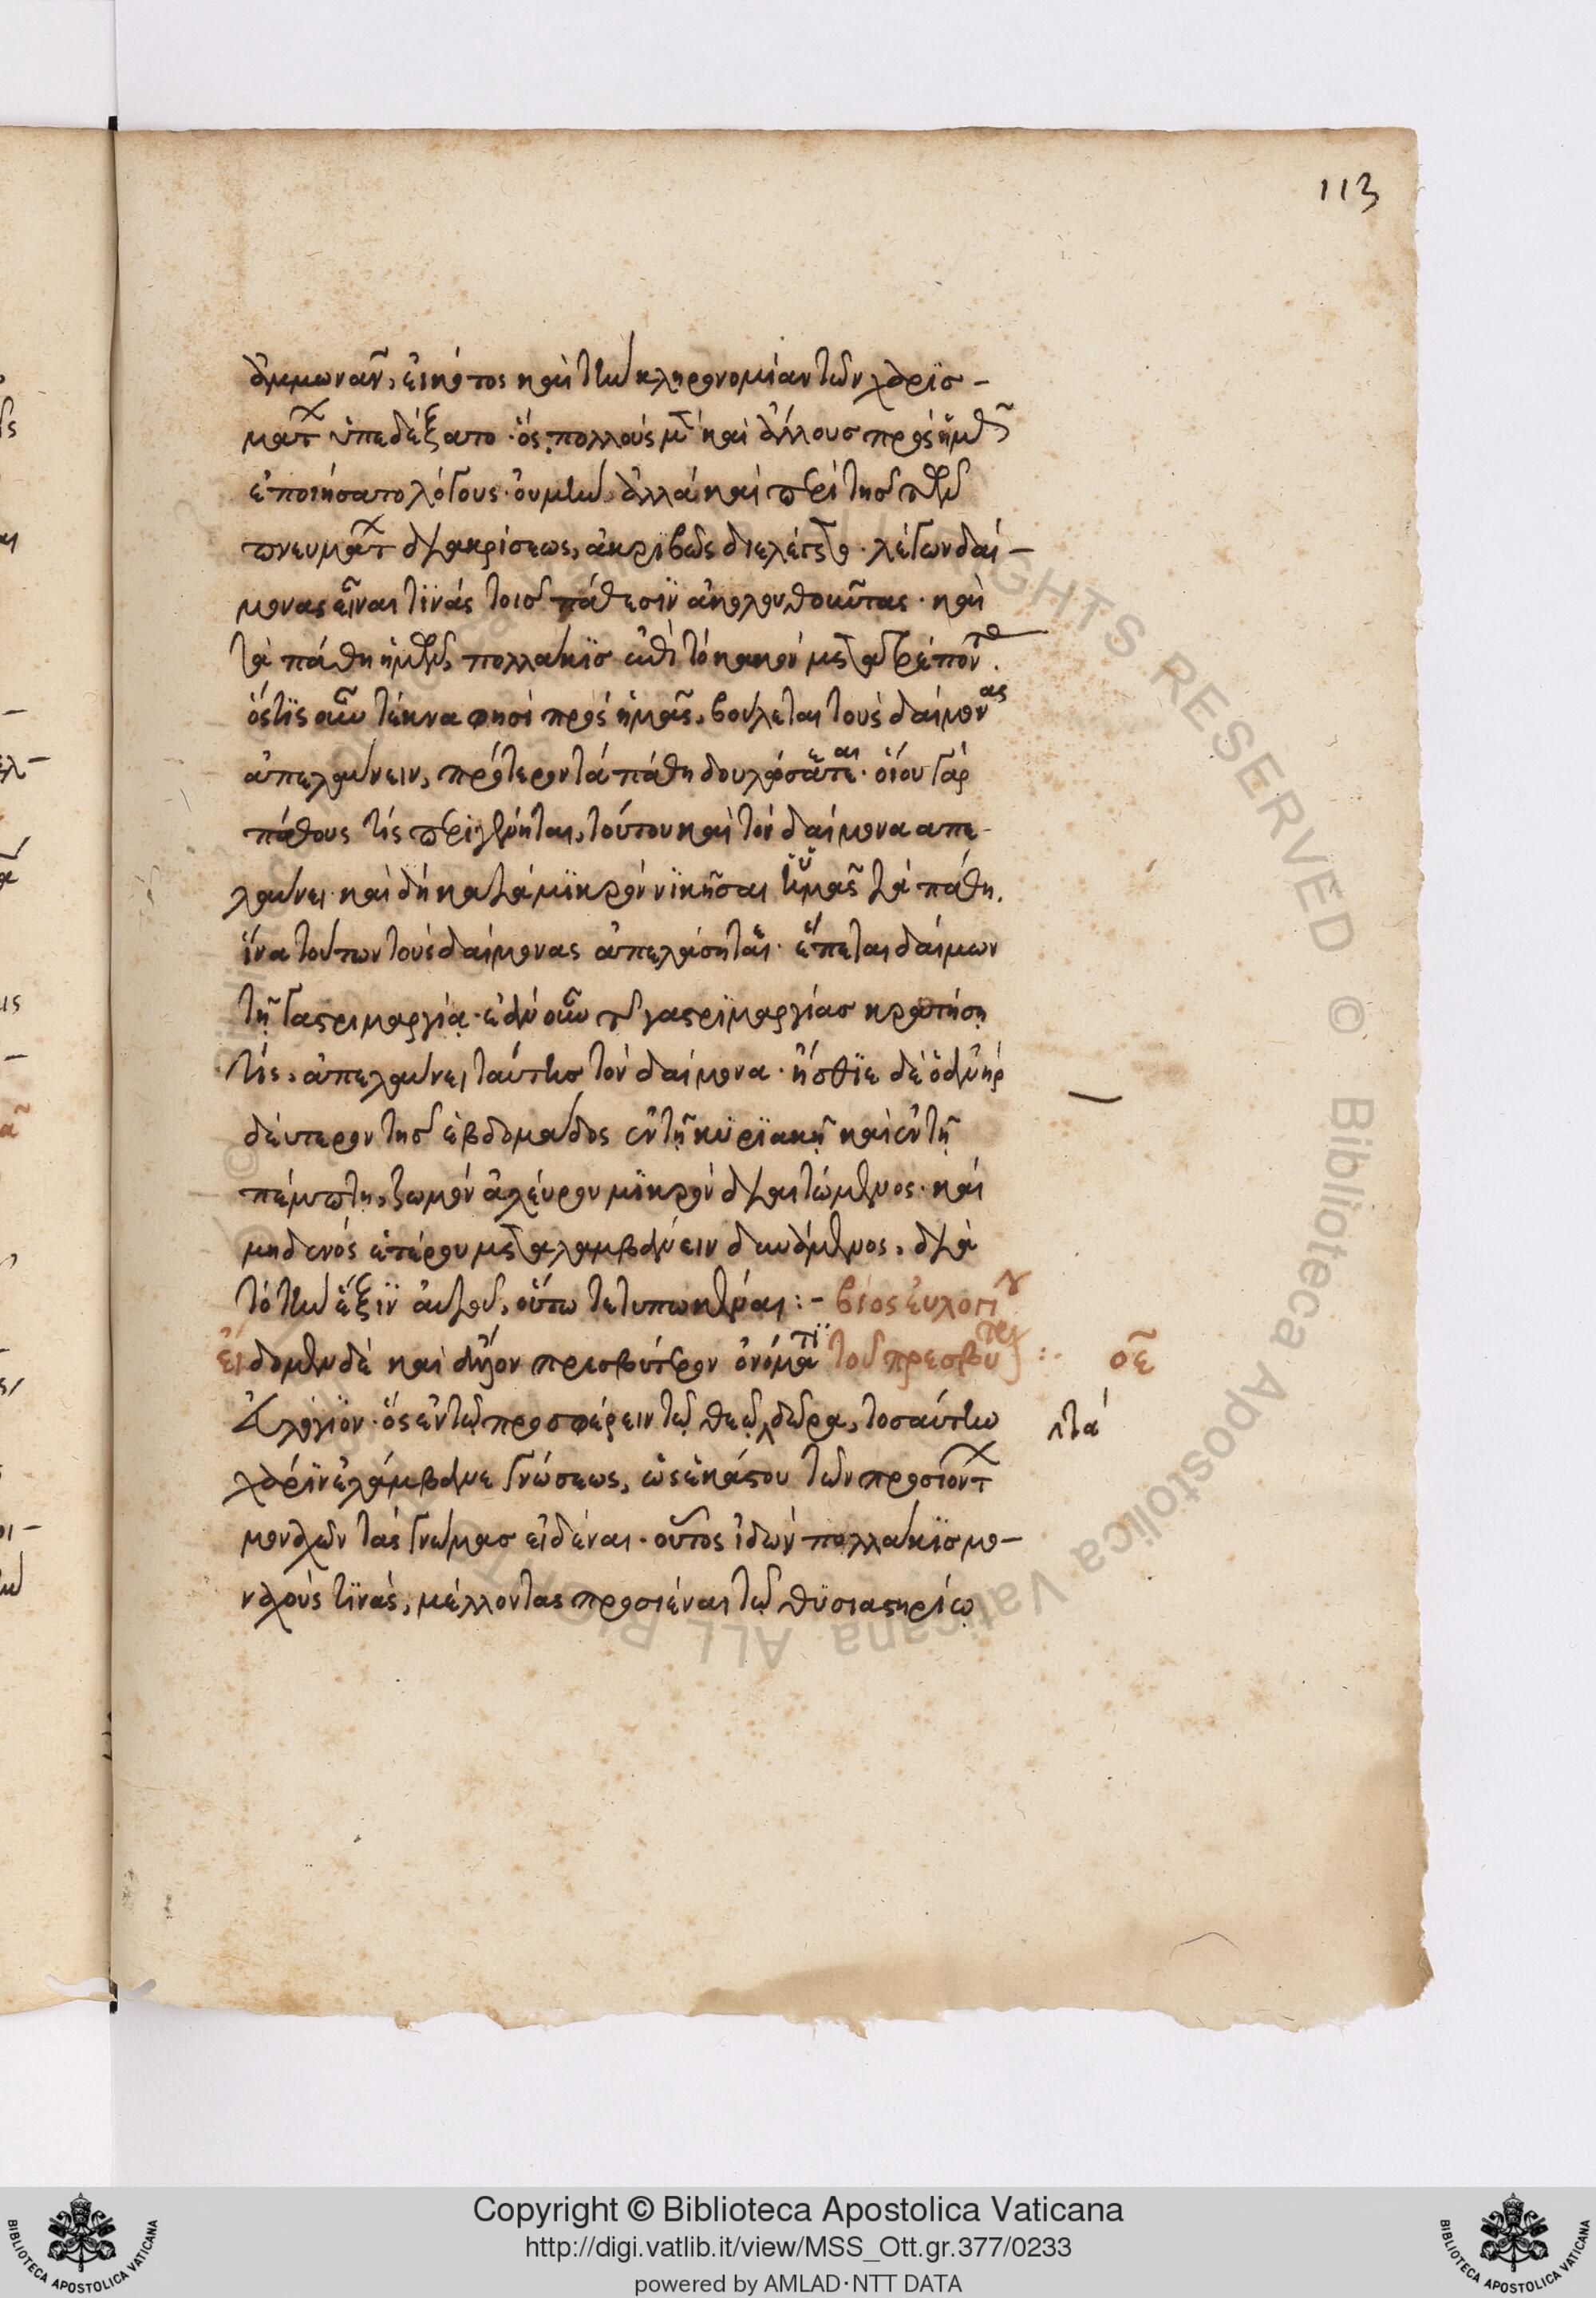 113
ἀμμωνᾶν, εἰκότος καὶ τὴν κληρονομίαν τῶν χαρϊσ -
ματ ὑπεδέξατο · ὅς πολλούς μ̅ καὶ ἄλλους πρὸς ἡμᾶς
ἐποιήσατο λόγους · οὐ μὴν ἀλλά καὶ περὶ τῆς τῶν
πνευματ διακρίσεως, ἀκριβῶς διελέγετο · λέγων δαί -
μονας εἶναι τϊνάς τοῖς πάθεσϊν ἀκολουθοῦντας · καὶ
τὰ πάθη ἡμῶν, πολλάκϊσ ἐπὶ τὸ κακόν μετατρέποντ .
ὅστϊς οὖν τέκνα φησὶ πρὸς ἡμᾶς, βούλεται τοὺς δαίμονας
ἀπελαύνειν, πρότερον τά πάθη δουλώσατε · οἵου γάρ
πάθους τίς περιγένηται, τούτου καὶ τὸν δαίμονα απε -
λαύνει · καὶ δή κατά μϊκρόν νϊκῆσαι ὑμᾶς τὰ πάθη .
ἵνα τούτων τοὺς δαίμονας ἀπελάσηται · ἕπεται δαίμων
τῇ γαστριμαργίᾳ · ἐὰν οὖν τῆς γαστρϊμαργίασ κρατήσῃ
τίς, ἀπελαύνει ταύτησ τὸν δαίμονα · ἤσθϊε δὲ ὁ ἀνὴρ
δεύτερον τῆς ἑβδομάδος ἐν τῇ κυρϊακῇ καὶ ἐν τῇ
πέμπτῃ, ζωμόν ἀλεύρου μϊκρόν διαιτώμενος · καί
μηδενός ἑτέρου μεταλαμβάνειν δυνάμενος, διὰ
τὸ τὴν ἕξϊν αὐτοῦ, οὕτω τετυπωκέναι :- βίος εὐλογίου
τοῦ πρεσβυτερ :· οε
εἴδομεν δὲ καὶ ἄλλον πρεσβύτερον ὀνόματϊ
Εὐλόγϊον · ὅς ἐν τῷ προσφέρειν τῷ θεῷ δῶρα, τοσαύτην
τὰ
χάρϊν ἐλάμβανε γνώσεως, ὡς ἑκάστου τῶν προσϊόντ
μοναχῶν τάς γνώμασ εἰδέναι · οὗτος ἰδών πολλάκϊσ μο -
ναχούς τϊνάς, μέλλοντας προσιέναι τῷ θϋσιαστηρίῳ
Copyright © Biblioteca Apostolica Vaticana
http://digi.vatlib.it/view/MSS_Ott.gr.377/0233
powered by AMLAD·NTT DATA
BIBLIOTECA APOSTOLICA VATICANA
BIBLIOTECA APOSTOLICA VATICANA